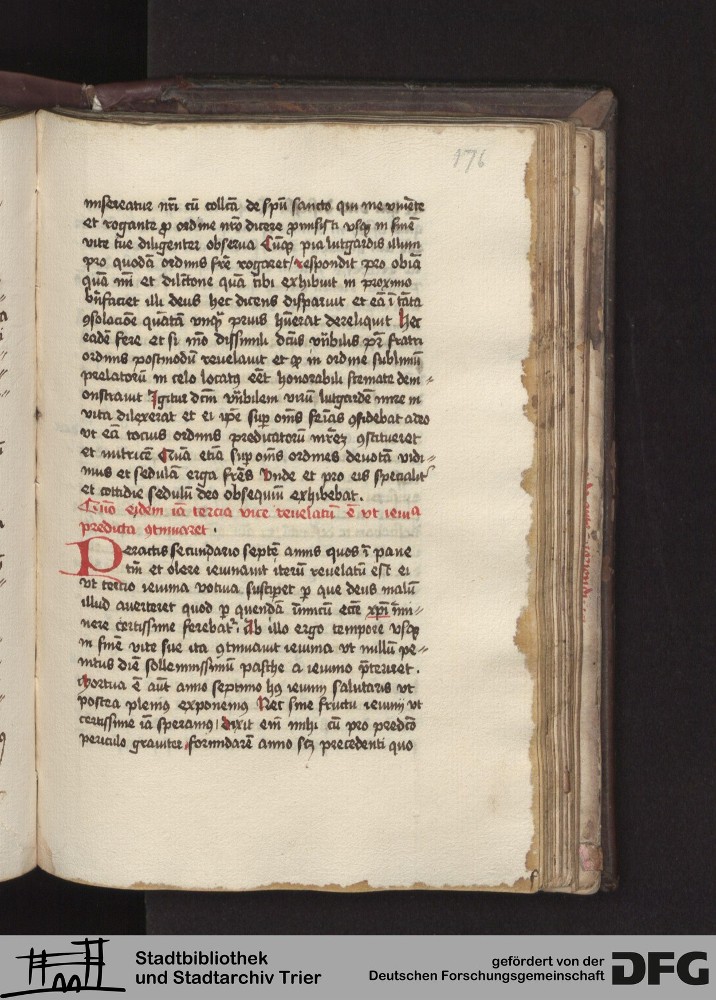 176
misereatur nr̄i cū collc̄a de spū sancto qui me viuēte
et rogante ꝓ ordine nrō dicere ꝓmisisti vsqꝫ in finē
vite tue diligenter obserua Cūqꝫ pia lutgardis illum
pro quodā ordinis frē rogaret / respondit pro obiā
quā m̄ et dilc̄tone quā tibi exhibuit in proximo
bn̄faciet illi deus hec dicens disparuit et eā ī tāta
ꝯsolacōne quātā vnqꝫ prius hūerat dereliquit Hec
eadē fere et si mō dissimili dcūs vn̄bilis pr̄ fratri
ordinis postmodū reuelauit et ꝙ in ordine sublimiū
prelatorū in celo locatꝰ eēt honorabili stemate dem
onstrauit Igitur dcm̄ vn̄bilem virū lutgardē mire in
vita dilexerat et ei ip̄e sup om̄s feīas ꝯfidebat adeo
vt eā tocius ordinis predicatorū mr̄eꝫ ꝯstitueret
et nutricē Quā etiā sup om̄s ordines deuotā vidi
mus et sedulā erga frēs Vnde et pro eis specialit̄
et cottidie sedulū deo obsequiū exhibebat.
Quō eidem iā tercia vice reuelatū ē vt ieiuīa
predicta ꝯtinuaret.
Peractis secundario septē annis quos ī pane
tm̄ et olere ieiunauit iterū reuelatū est ei
vt tertio ieiunia votiua susciperet ꝑ que deus malū
illud auerteret quod ꝑ quendā īimicū ecc̄e xp̄i immi
nere certissime ferebat᷑ Ab illo ergo tempore vsqꝫ
in finē vite sue ita ꝯtinuauit ieiunia vt nullū pe
nitus diē sollemnissimū pasche a ieiunio p̄teriret.
Mortua ē aūt anno septimo hꝰ ieiunij salutaris vt
postea plenius exponemꝰ Nec sine fructu ieiunij vt
certissime iā speramꝰ / dixit em̄ mihi cū pro predc̄o
periculo grauiter formidarē anno scꝫ precedenti quo
Stadtbibliothek
und Stadtarchiv Trier
gefördert von der
Deutschen Forschungsgemeinschaft
DFG